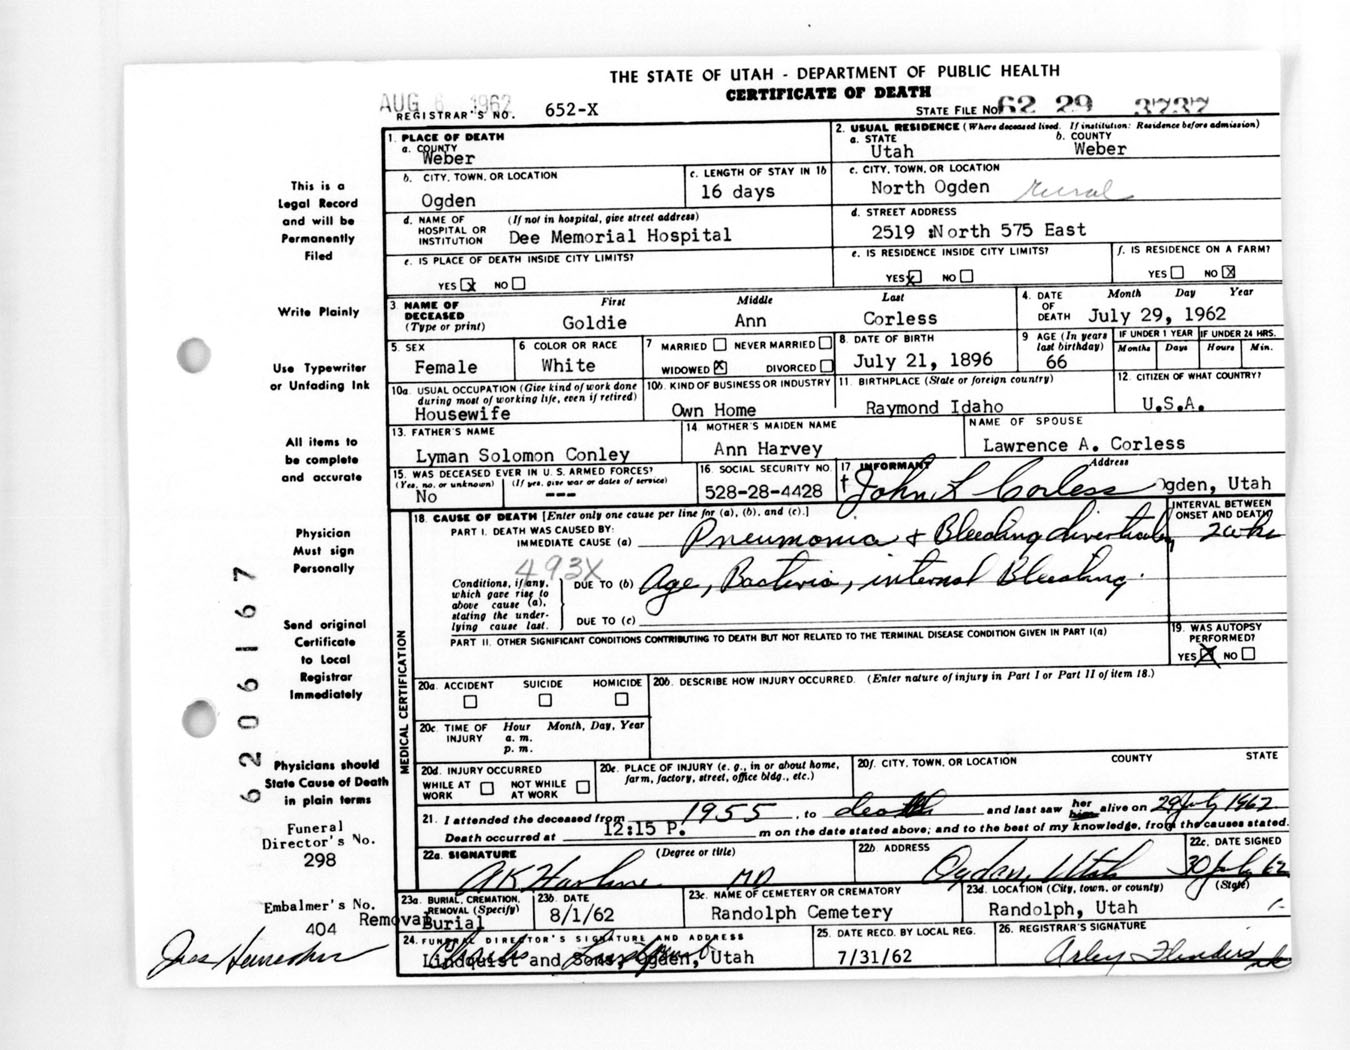 THE STATE OF UTAH - DEPARTMENT OF PUBLIC HEALTH
CERTIFICATE OF DEATH
AUG 6 1962
REGISTRAR'S NO. 652-X
STATE FILE No. 62 29 3737
1. PLACE OF DEATH
a. COUNTY
Weber
2. USUAL RESIDENCE (Where deceased lived. If institution: Residence before admission)
a. STATE b. COUNTY
Utah Weber
b. CITY, TOWN, OR LOCATION
Ogden
c. LENGTH OF STAY IN 1b
16 days
c. CITY, TOWN, OR LOCATION
North Ogden rural
d. NAME OF HOSPITAL OR INSTITUTION (If not in hospital, give street address)
Dee Memorial Hospital
d. STREET ADDRESS
2519 North 575 East
e. IS PLACE OF DEATH INSIDE CITY LIMITS?
YES X NO
e. IS RESIDENCE INSIDE CITY LIMITS?
YES X NO
f. IS RESIDENCE ON A FARM?
YES NO X
3. NAME OF DECEASED (Type or print)
First Middle Last
Goldie Ann Corless
4. DATE OF DEATH
Month Day Year
July 29, 1962
5. SEX
Female
6 COLOR OR RACE
White
7 MARRIED NEVER MARRIED
WIDOWED X DIVORCED
8. DATE OF BIRTH
July 21, 1896
9 AGE (In years last birthday)
66
IF UNDER 1 YEAR IF UNDER 24 HRS.
Months Days Hours Min.
10a. USUAL OCCUPATION (Give kind of work done during most of working life, even if retired)
Housewife
10b. KIND OF BUSINESS OR INDUSTRY
Own Home
11. BIRTHPLACE (State or foreign country)
Raymond Idaho
12. CITIZEN OF WHAT COUNTRY?
U.S.A.
13. FATHER'S NAME
Lyman Solomon Conley
14 MOTHER'S MAIDEN NAME
Ann Harvey
NAME OF SPOUSE
Lawrence A. Corless
15. WAS DECEASED EVER IN U. S. ARMED FORCES?
(Yes, no, or unknown) (If yes, give war or dates of service)
No ---
16. SOCIAL SECURITY NO.
528-28-4428
17. INFORMANT Address
John L Corless Ogden, Utah
MEDICAL CERTIFICATION
18. CAUSE OF DEATH [Enter only one cause per line for (a), (b), and (c).]
INTERVAL BETWEEN ONSET AND DEATH?
PART I. DEATH WAS CAUSED BY:
IMMEDIATE CAUSE (a) Pneumonia + Bleeding diverticula 2 wks
493X
Conditions, if any, which gave rise to above cause (a), stating the underlying cause last.
DUE TO (b) Age, Bacteria, internal Bleeding.
DUE TO (c)
PART II. OTHER SIGNIFICANT CONDITIONS CONTRIBUTING TO DEATH BUT NOT RELATED TO THE TERMINAL DISEASE CONDITION GIVEN IN PART I(a)
19. WAS AUTOPSY PERFORMED?
YES X NO
20a. ACCIDENT SUICIDE HOMICIDE
20b. DESCRIBE HOW INJURY OCCURRED. (Enter nature of injury in Part I or Part II of item 18.)
20c. TIME OF INJURY Hour Month, Day, Year
a. m.
p. m.
20d. INJURY OCCURRED
WHILE AT WORK NOT WHILE AT WORK
20e. PLACE OF INJURY (e. g., in or about home, farm, factory, street, office bldg., etc.)
20f. CITY, TOWN, OR LOCATION COUNTY STATE
21. I attended the deceased from 1955, to death and last saw her him alive on 29 July 1962
Death occurred at 12:15 P. m on the date stated above; and to the best of my knowledge, from the causes stated.
22a. SIGNATURE (Degree or title)
MD
22b. ADDRESS
Ogden, Utah
22c. DATE SIGNED
30 July 62
(State)
23a. BURIAL, CREMATION, REMOVAL (Specify)
Removal Burial
23b. DATE
8/1/62
23c. NAME OF CEMETERY OR CREMATORY
Randolph Cemetery
23d. LOCATION (City, town, or county)
Randolph, Utah
24. FUNERAL DIRECTOR'S SIGNATURE AND ADDRESS
Lindquist and Sons, Ogden, Utah
25. DATE RECD. BY LOCAL REG.
7/31/62
26. REGISTRAR'S SIGNATURE
This is a
Legal Record
and will be
Permanently
Filed
Write Plainly
Use Typewriter
or Unfading Ink
All items to
be complete
and accurate
Physician
Must sign
Personally
Send original
Certificate
to Local
Registrar
Immediately
Physicians should
State Cause of Death
in plain terms
Funeral
Director's No.
298
Embalmer's No.
404
6206167